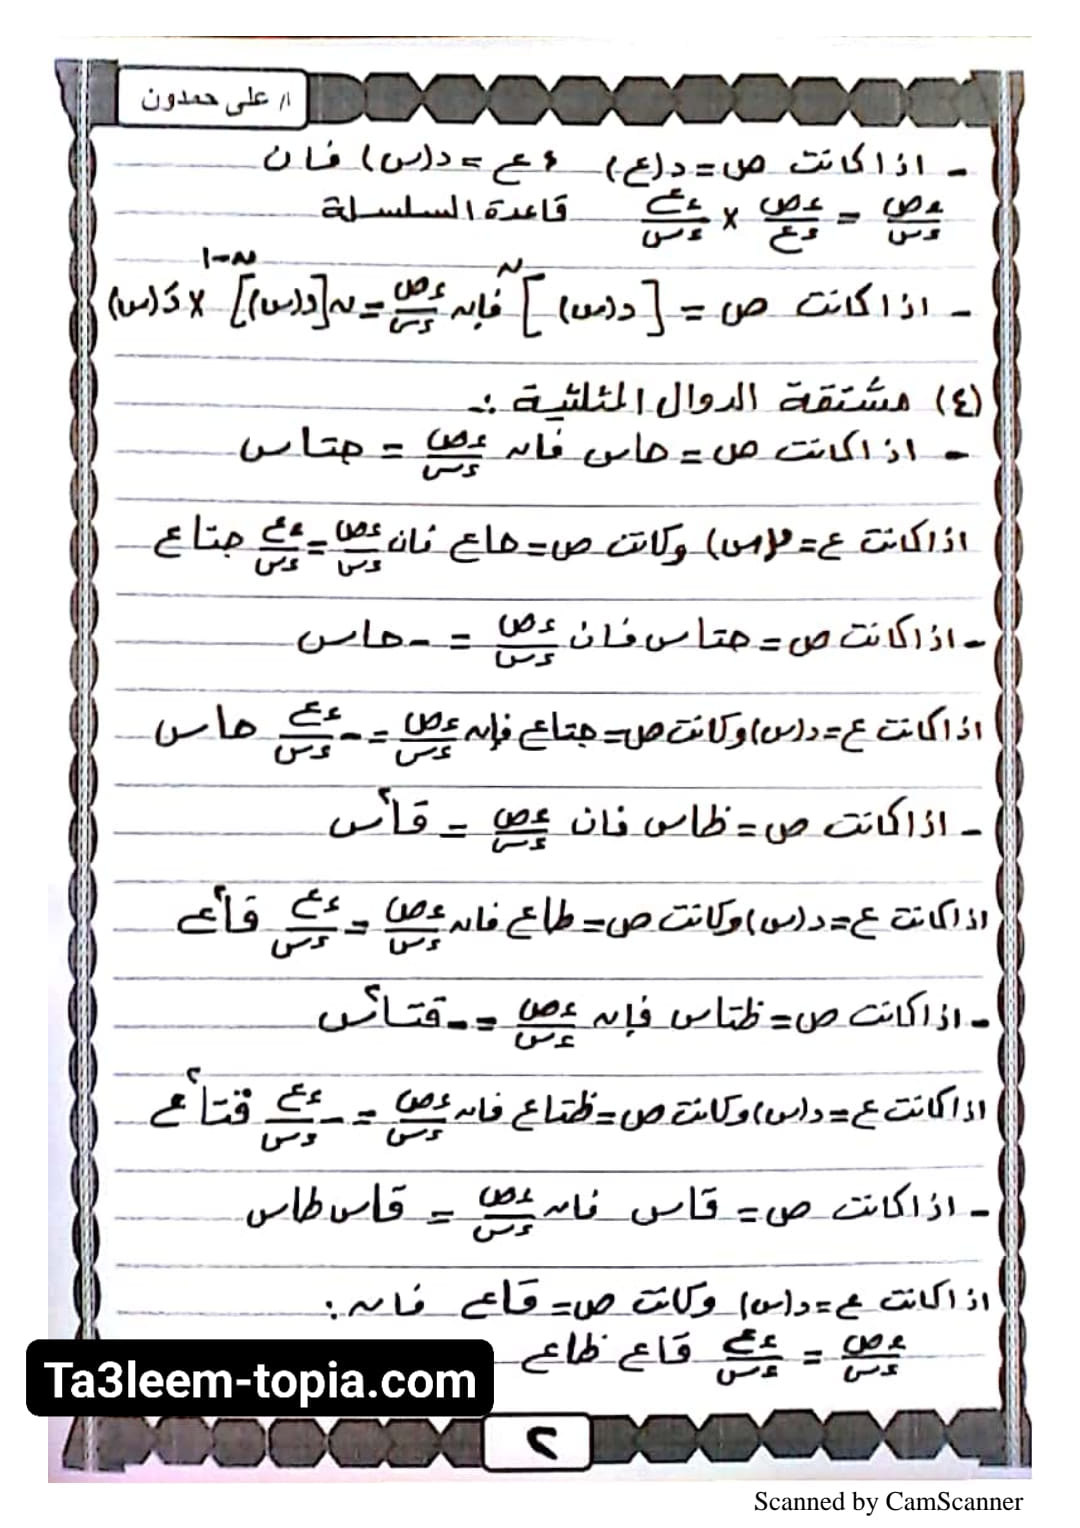 ا/ على حمدون
- اذا كانت ص = د(ع) ، ع = د(س) فان
ءص/ءس = ءص/ءع × ءع/ءس قاعدة السلسلة
- اذا كانت ص = [د(س)]^ن فإنه ءص/ءس = ن[د(س)]^(ن-١) × دَ(س)
(٤) مشتقة الدوال المثلثية :-
- اذا كانت ص = حاس فانه ءص/ءس = جتاس
اذا كانت ع = د(س) وكانت ص = حاع فان ءص/ءس = ءع/ءس جتاع
- اذا كانت ص = جتاس فان ءص/ءس = - حاس
اذا كانت ع = د(س) وكانت ص = جتاع فإنه ءص/ءس = - ءع/ءس حاس
- اذا كانت ص = ظاس فان ءص/ءس = قا٢س
اذا كانت ع = د(س) وكانت ص = طاع فانه ءص/ءس = ءع/ءس قا٢ع
- اذا كانت ص = ظتاس فإنه ءص/ءس = - قتا٢س
اذا كانت ع = د(س) وكانت ص = ظتاع فانه ءص/ءس = - ءع/ءس قتا٢ع
- اذا كانت ص = قاس فانه ءص/ءس = قاس طاس
اذا كانت ع = د(س) وكانت ص = قاع فانه :
ءص/ءس = ءع/ءس قاع ظاع
Ta3leem-topia.com
٢
Scanned by CamScanner